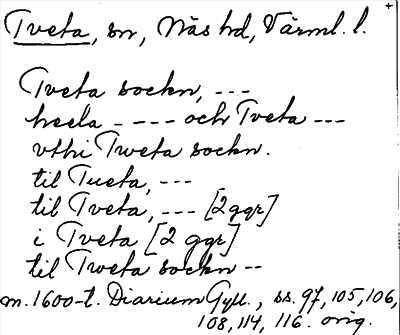 Tveta, sn, Näs hd, Värml. l.
Tveta sockn, ---
heela ---- och Tveta ---
vthi Tweta sockn.
til Tueta, ---
til Tveta, --- [2 ggr]
i Tveta [2 ggr]
til Tweta sockn --
m. 1600-t. Diarium Gyll., ss. 97, 105, 106,
108, 114, 116. orig.